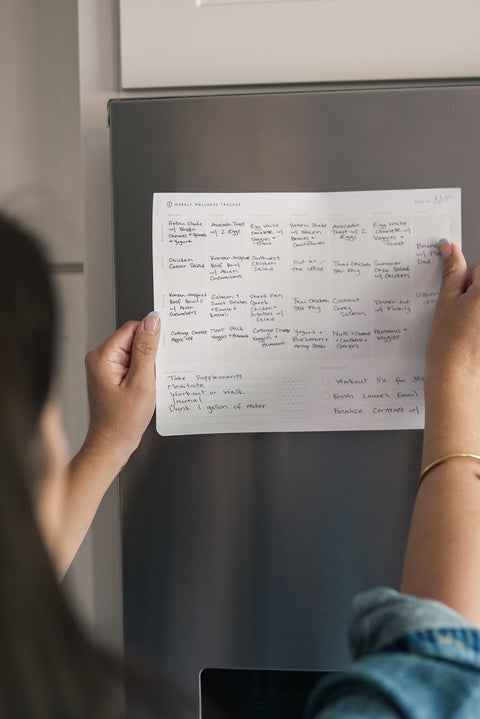 WEEKLY WELLNESS TRACKER
8/15
Protein Shake
w/ Frozen
+ Yogurt
Avocado Toast
w/ 2 Eggs
Egg White
Omelette w/
Veggies +
Toast
Protein Shake
w/ Frozen
Berries +
Cauliflower
Avocado
Toast w/ 2
Eggs
Egg White
Omelette w/
Veggies +
Toast
Dad
Chicken
Caesar Salad
Korean-Inspired
Beef Bowl
w/ Asian
Cucumbers
Southwest
Chicken
Salad
Out at
the office
Thai Chicken
Stir Fry
Summer
Orzo Salad
w/ Chicken
Korean-Inspired
Beef Bowl
w/ Asian
Cucumbers
Salmon +
Sweet Potatoes
Sheet Pan
Greek
Chicken +
Potatoes w/
Salad
Thai Chicken
Stir Fry
Coconut
Curry
Salmon
Dinner out
w/ Family
Cottage Cheese
Apple
Meat Stick
Veggies + Hummus
Cottage Cheese
Veggies +
Hummus
Yogurt +
Blueberries +
Hemp Seeds
Nuts + Cheese
+ Crackers +
Grapes
Hummus +
Veggies
Take Supplements
Meditate
Workout or Walk
Journal
Drink 1 gallon of water
Workout 5x for
Finish Launch Email
Finalize Contract w/